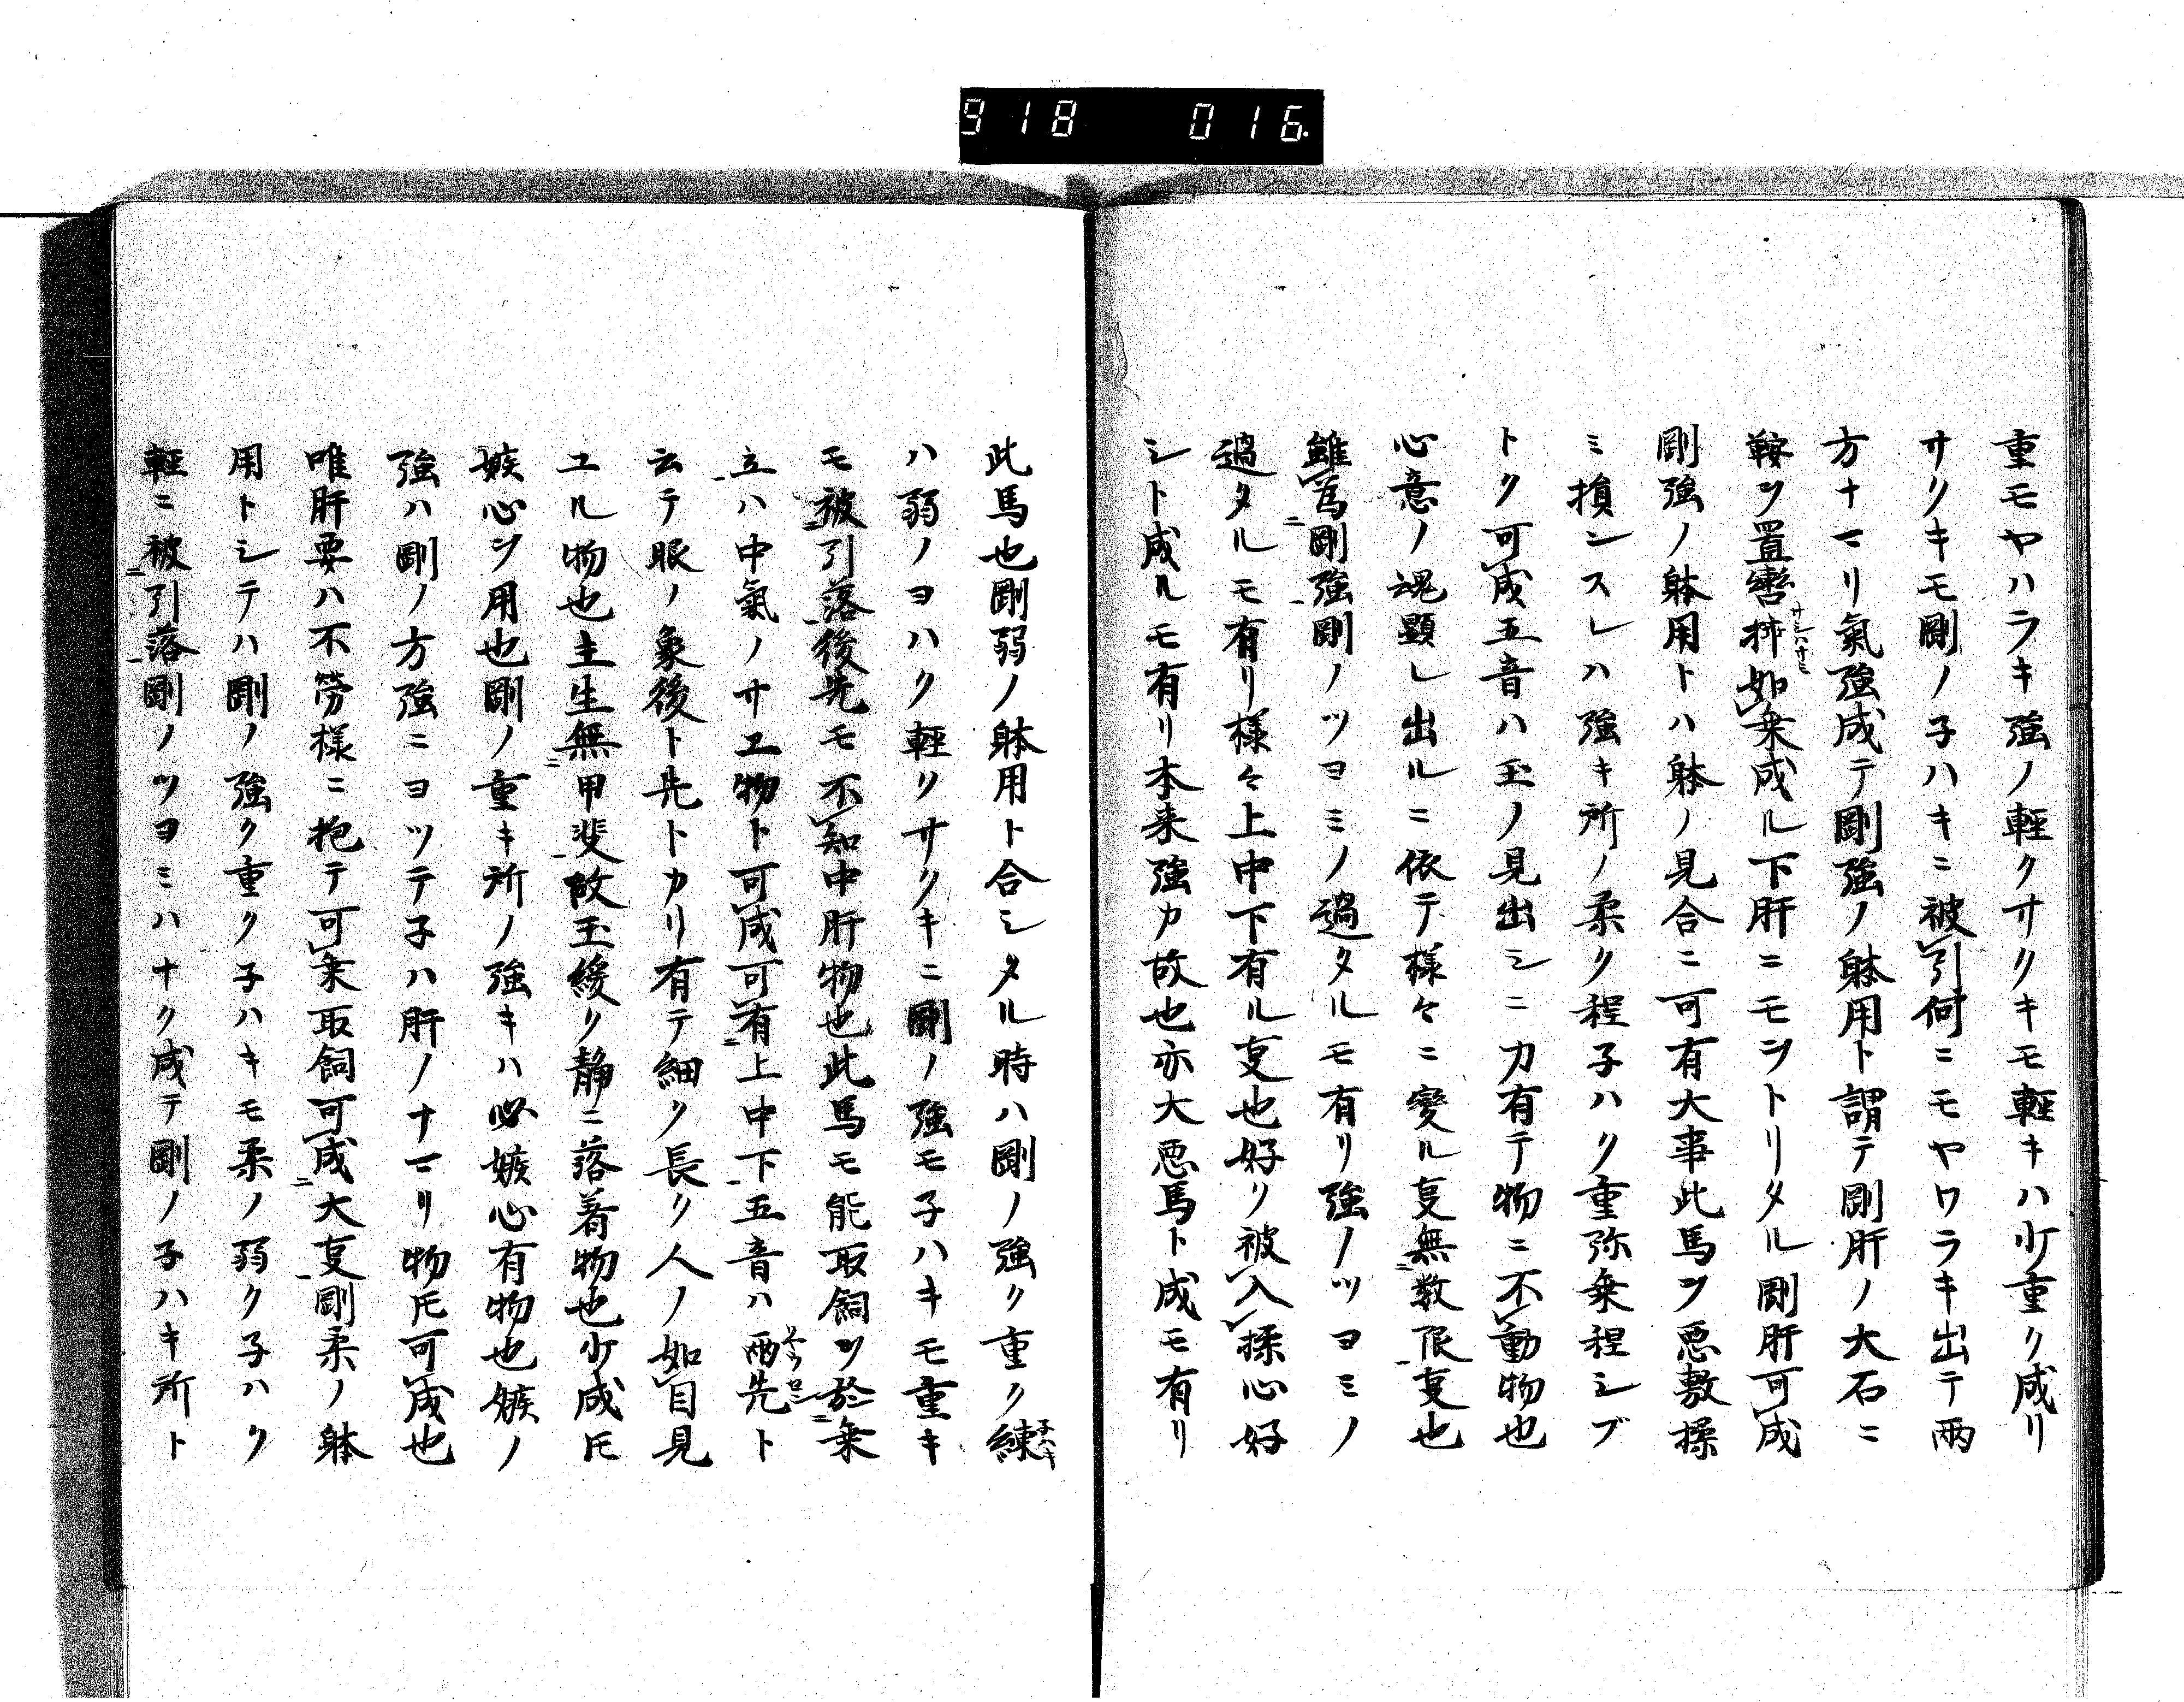 918 016.
重モヤハラキ強ノ軽クサクキモ軽キハ少重ク成リ
サクキモ剛ノ子ハキニ被引何ニモヤワラキ出テ両
方ナマリ氣強成テ剛強ノ躰用ト謂テ剛肝ノ大石ニ
鞍ヲ置轡サシハサミ如乗成ル下肝ニモヲトリタル剛肝可成
剛強ノ躰用トハ躰ノ見合ニ可有大事此馬ヲ悪敷揉
ミ損ンスレハ強キ所ノ柔ク程子ハク重弥乗程シブ
トク可成五音ハ玉ノ見出シニ力有テ物ニ不動物也
心意ノ魂顕レ出ルニ依テ様々ニ變ル叓無数限叓也
雖為剛強剛ノツヨミノ過タルモ有リ強ノツヨミノ
過タルモ有リ様々上中下有ル叓也好ク被入揉心好
シト成ルモ有リ本来強カ故也亦大悪馬ト成モ有リ
此馬也剛弱ノ躰用ト合シタル時ハ剛ノ強ク重ク練子ハキ
ハ弱ノヨハク軽クサクキニ剛ノ強モ子ハキモ重キ
モ被引落後先モ不知中肝物也此馬モ能取飼ヲ於乗
立ハ中氣ノサエ物ト可成可有上中下五音ハ両先ト
云テ眼ノ象後ト先トカリ有テ細ク長ク人ノ如目見
ユル物也主生無甲斐故玉緩ク静ニ落着物也少成圧
嫉心ヲ用也剛ノ重キ所ノ強キハ必嫉心有物也嫉ノ
強ハ剛ノ方強ニヨツテ子ハ肝ノナマリ物圧可成也
唯肝要ハ不労様ニ抱テ可乗取飼可成大叓剛柔ノ躰
用トシテハ剛ノ強ク重ク子ハキモ柔ノ弱ク子ハク
軽ニ被引落剛ノツヨミハナク成テ剛ノ子ハキ所ト